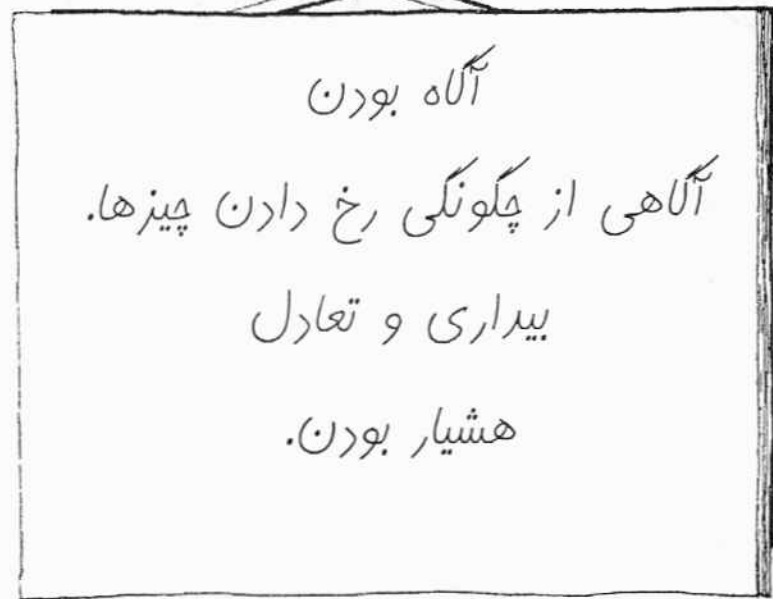 آگاه بودن
آگاهی از چگونگی رخ دادن چیزها.
بیداری و تعادل
هشیار بودن.